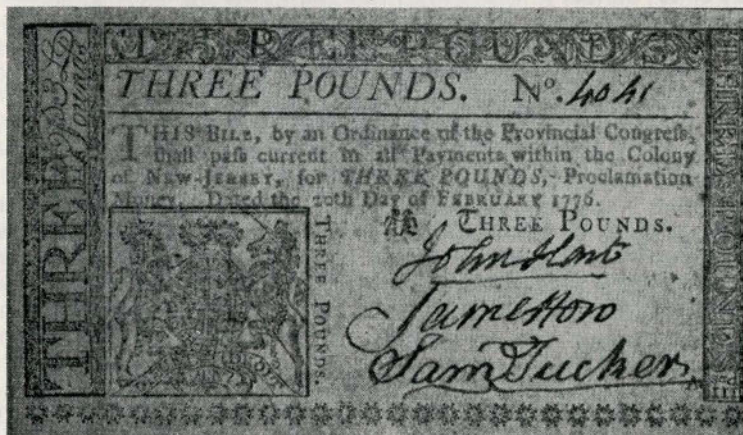 THREE POUNDS
THREE POUNDS. No. 4041
THIS BILL, by an Ordinance of the Provincial Congress,
shall pass current in all Payments within the Colony
of NEW-JERSEY, for THREE POUNDS, Proclamation
Money. Dated the 20th Day of FEBRUARY 1776.
THREE POUNDS.
John Hart
James How
Sam Tucker
THREE POUNDS.
THREE
Pounds
THREE POUNDS